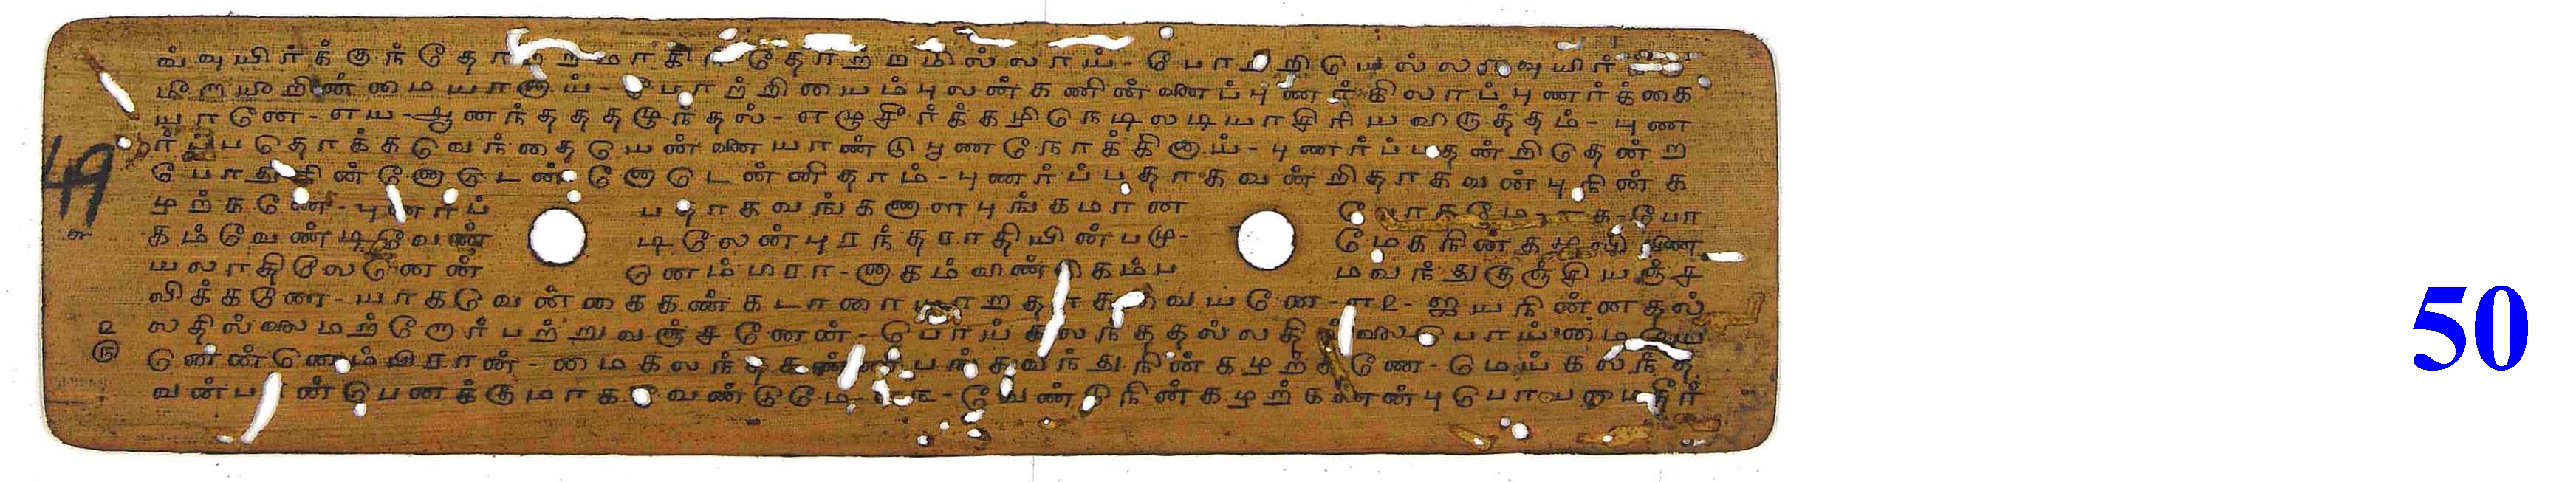 வ்வுயிர்க்குந் தோற்றமாகி தோற்றமில்லாய் - போற்றியெல்லாவுயிர்
மீறாயீறின்மையானாய் - போற்றியைம்புலன்கணின்னைப்புணர்கிலாப்புணர்க்கை
யானே - எய - ஆனந்தத்தழுந்தல் - எழுசீர்க்கழிநெடிலடியாசிரியவிருத்தம் - புண
ர்ப்பதொக்கவெந்தையென்னையாண்டுபூணநோக்கினாய் - புணர்ப்பதன்றிதென்ற
போதுநின்னொடென்னொடென்னிதாம் - புணர்ப்பதாகவன்றிதாகவன்புநின்க
ழற்கணே - புணர்ப் பதாகவங்கணாளபுங்கமான போகமே - போ
கம்வேண்டிவேண் டிலேன்புரந்தராதியின்பமு - மேகநின்கழலிணை
யலாதிலேனென் னெம்பரா - னாகம்விண்டுகம்ப மவந்துகுஞ்சியஞ்ச
லிக்கணே - யாகவென்கைகண்கடாரை - எஉ - ஐயநின்னதல்
லதில்லைமற்றோர்பற்றுவஞ்சனேன் - பொய்கலந்ததல்லதில்லைபொய்மையே
னென்னெம்பிரான் - மைகலந்தகண்ணிபங்கவந்துநின்கழற்கணே - மெய்கலந்த
வன்பரன்பெனக்குமாகவேண்டுமே - வேண்டுநின்கழற்கணன்புபொய்மைதீர்
49
50